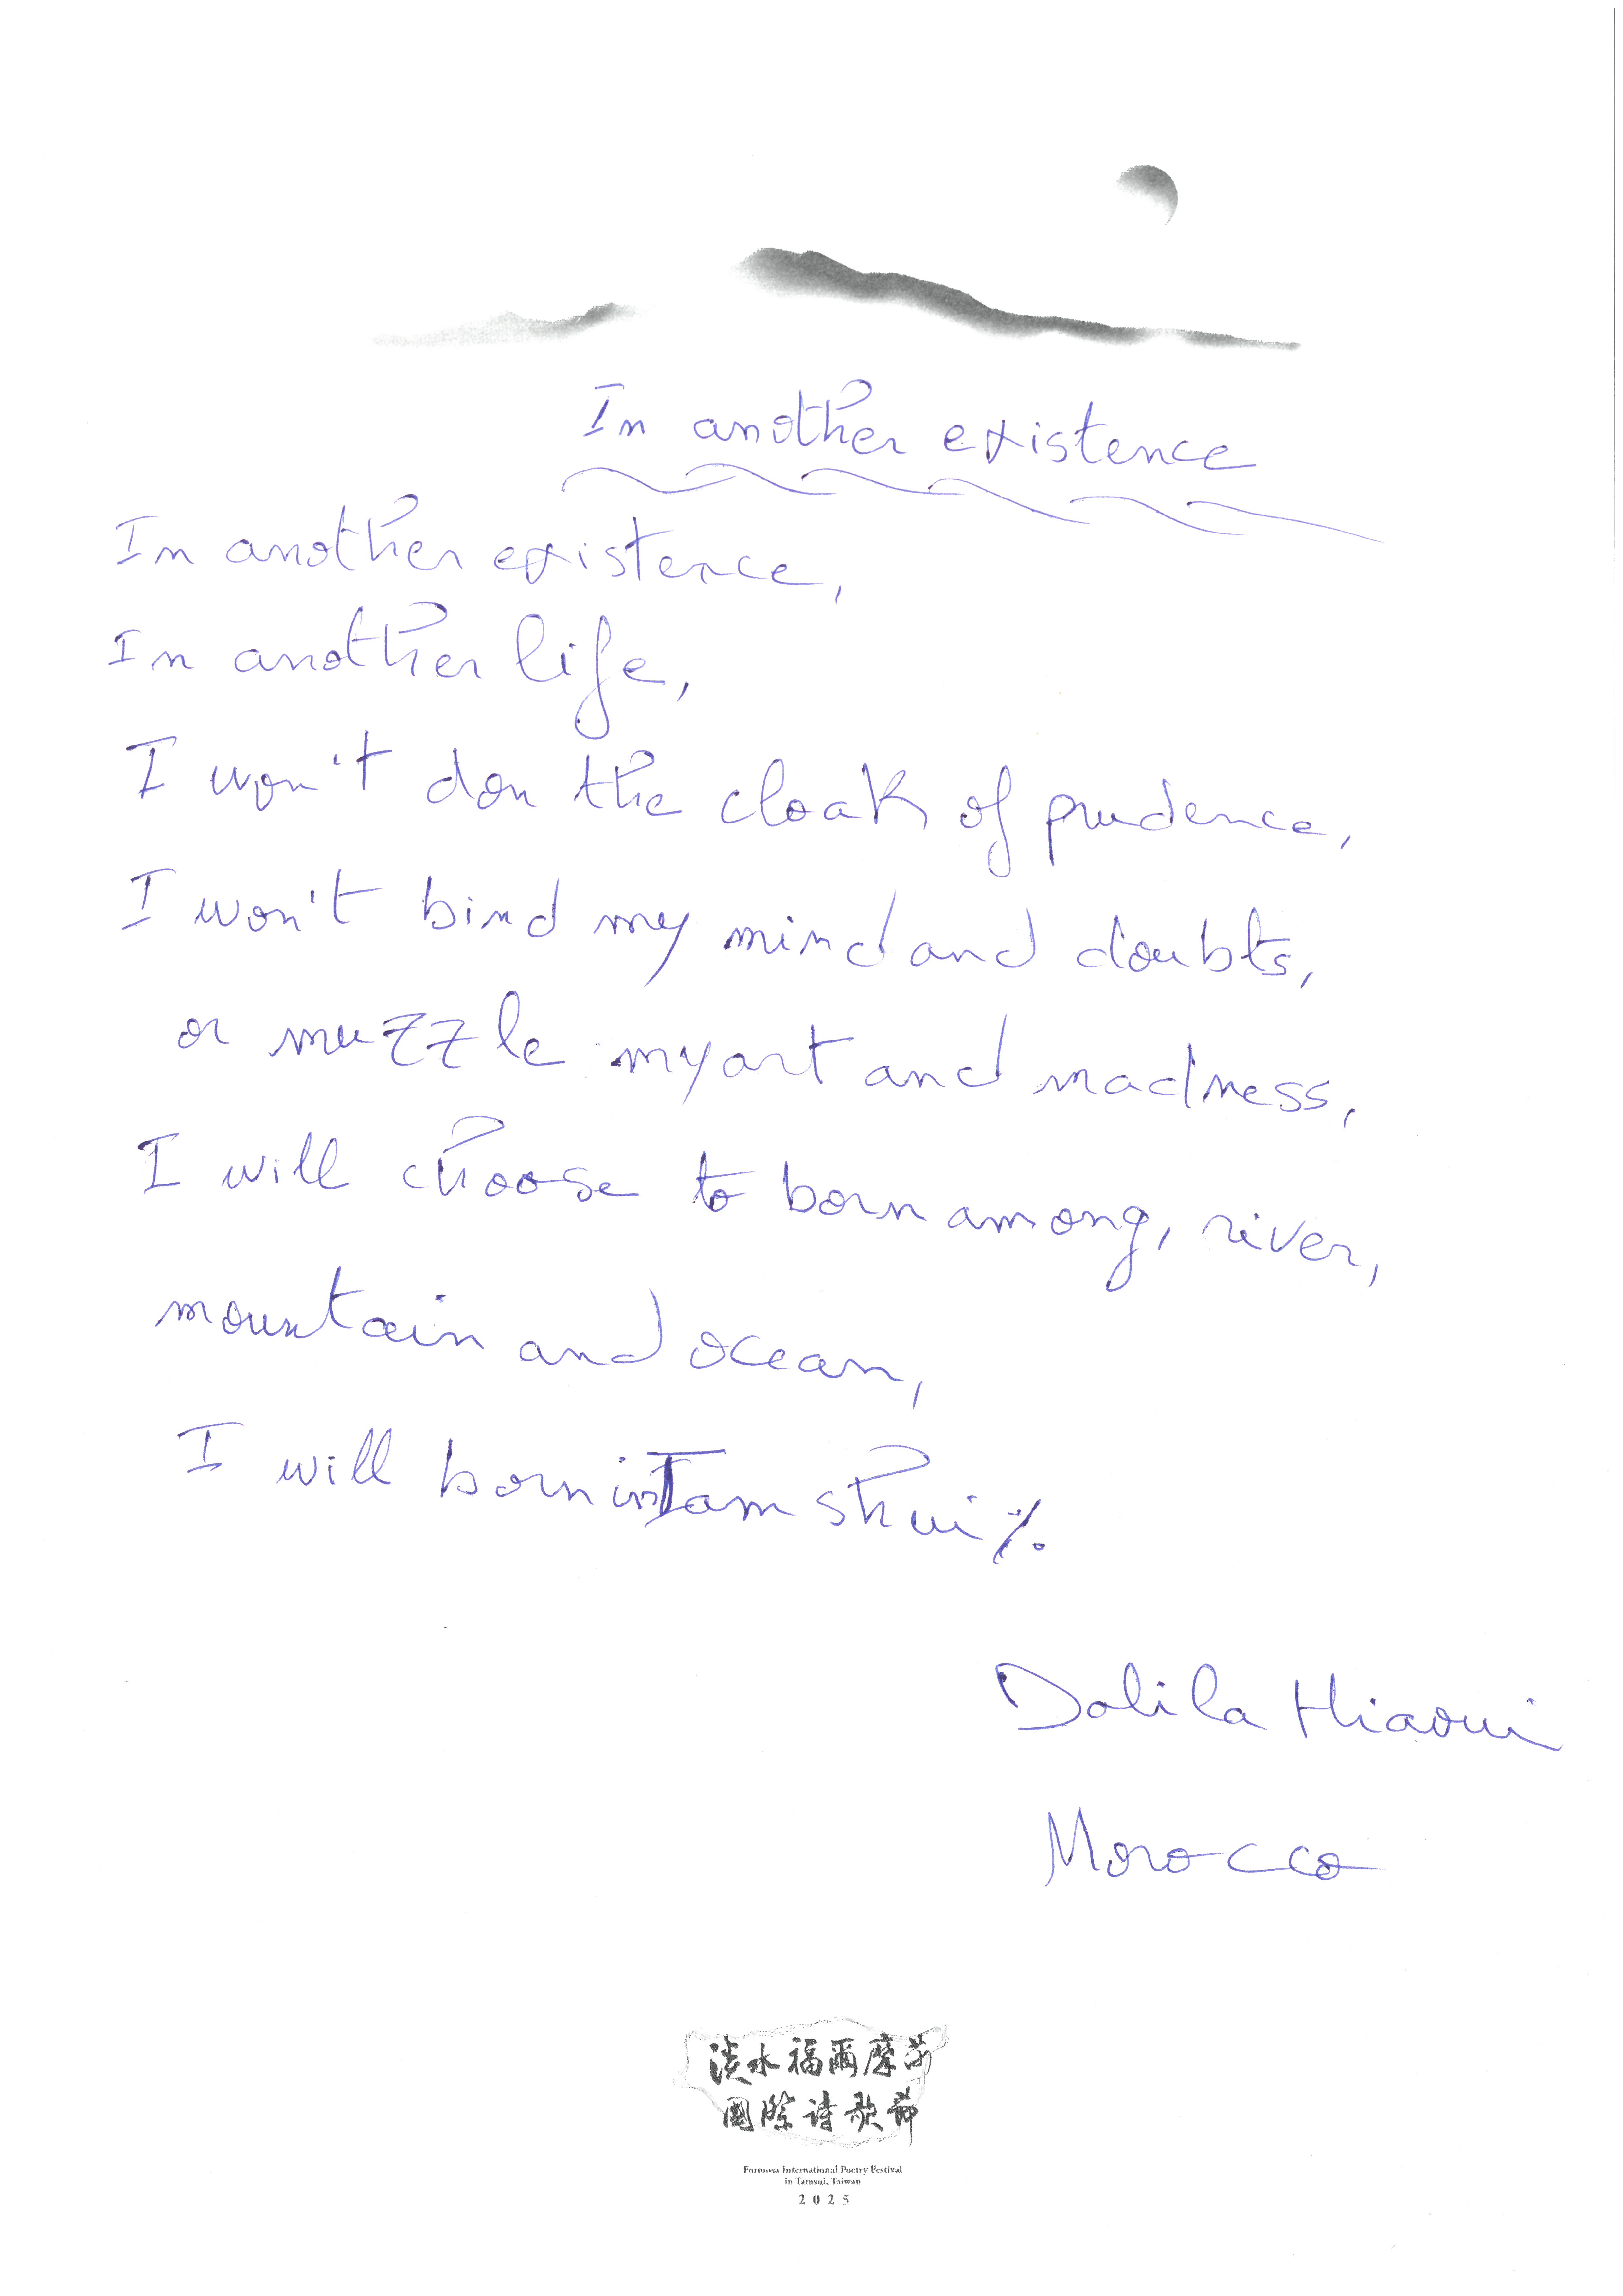 In another existence
In another existence,
In another life,
I won't don the cloak of prudence,
I won't bind my mind and doubts,
or muzzle my art and madness,
I will choose to born among, river,
mountain and ocean,
I will born in Tamshui %.
Dalila Hiaoui
Morocco
淡水福爾摩莎
國際詩歌節
Formosa International Poetry Festival
in Tamsui, Taiwan
2025